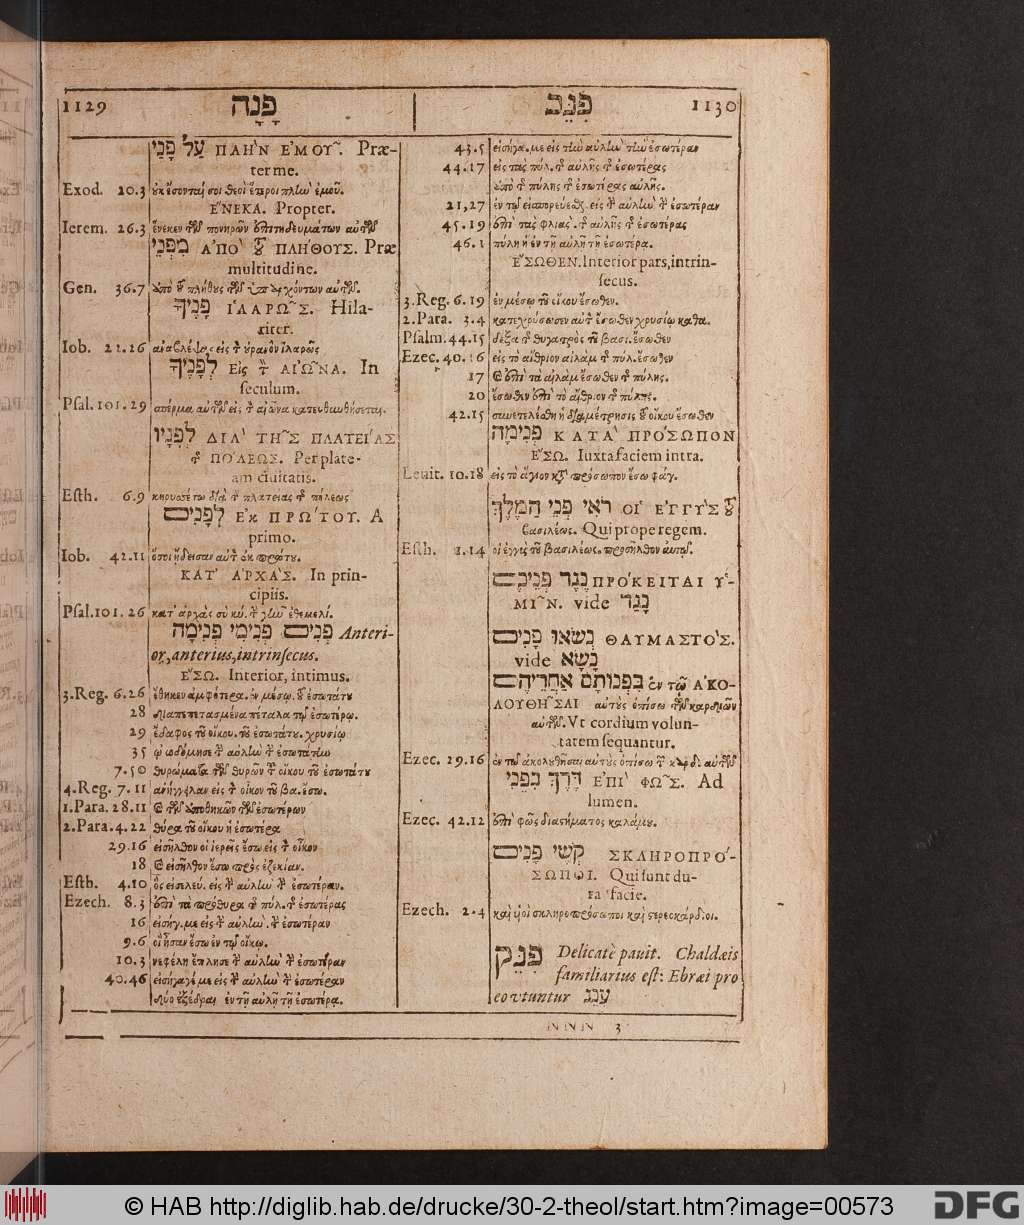 1129 פָּנָה
עַל פָּנַי ΠΛΗ῀Ν Ε᾿ΜΟΥ῀. Præ-
ter me.
Exod. 20.3 ἐκ ἔσονταί σοι θεοὶ ἕτεροι πλὴν ἐμοῦ.
Ε῞ΝΕΚΑ. Propter.
Ierem. 26.3 ἕνεκεν τῶν πονηρῶν ἐπιτηδευμάτων αὐτῶν
מִפְּנֵי Α᾿ΠΟ` τοῦ ΠΛΗ΄ΘΟΥΣ. Præ
multitudine.
Gen. 36.7 ὑπὸ τοῦ πλήθους τῶν ὑπαρχόντων αὐτῶν.
פָּנֶיךָ Ι῾ΛΑΡΩ῀Σ. Hila-
riter.
Iob. 22.26 ἀναβλέψας εἰς τὸν οὐρανὸν ἱλαρῶς
לְפָנֶיךָ Εἰς τὸν ΑΙΩ῀ΝΑ. In
seculum.
Psal. 101.29 σπέρμα αὐτῶν εἰς τὸν αἰῶνα κατευθυνθήσεται.
לְפָנָיו ΔΙΑ` ΤΗ῀Σ ΠΛΑΤΕΙ΄ΑΣ
τῆς ΠΟ΄ΛΕΩΣ. Per plate-
am ciuitatis.
Esth. 6.9 κηρυσσέτω διὰ τῆς πλατείας τῆς πόλεως
לְפָנִים Εκ ΠΡΩ΄ΤΟΥ. A
primo.
Iob. 42.11 ὅσοι ᾔδεισαν αὐτὸν ἐκ πρώτου.
ΚΑΤ᾿ ΑΡΧΑ΄Σ. In prin-
cipiis.
Psal. 101.26 κατ᾿ ἀρχὰς σὺ κύ. τὴν γῆν ἐθεμελί.
פְּנִים פְּנִימִי פְּנִימָה Anteri-
or, anterius, intrinsecus.
Ε῎ΣΩ. Interior, intimus.
3.Reg. 6.26 ἔθηκεν ἀμφότερα. ἐν μέσῳ. τοῦ ἐσωτάτου
28 διαπεπετασμένα πέταλα τῷ ἐσωτέρῳ.
29 ἔδαφος τοῦ οἴκου. τοῦ ἐσωτάτου. χρυσίῳ
35 ᾠκοδόμησε τὴν αὐλὴν τὴν ἐσωτάτην
7.50 θυρώματα τῶν θυρῶν τοῦ οἴκου τοῦ ἐσωτάτου
4.Reg. 7.11 ἀνήγγειλαν εἰς τὸν οἶκον τοῦ βα. ἔσω.
1.Para. 28.11 καὶ τῶν ἀποθηκῶν τῶν ἐσωτέρων
2.Para. 4.22 θύρα τοῦ οἴκου ἡ ἐσωτέρα
29.16 εἰσῆλθον οἱ ἱερεῖς ἔσω εἰς τὸν οἶκον
18 καὶ εἰσῆλθον ἔσω πρὸς ἐζεκίαν.
Esth. 4.10 ὃς εἰσελεύ. εἰς τὴν αὐλὴν τὴν ἐσωτέραν.
Ezech. 8.3 ἐπὶ τὰ πρόθυρα τῆς πύλ. τῆς ἐσωτέρας
16 εἰσήγ. με εἰς τὴν αὐλὴν. τὴν ἐσωτέραν
9.6 οἳ ἦσαν ἔσω ἐν τῷ οἴκῳ.
10.3 νεφέλη ἔπλησε τὴν αὐλὴν τὴν ἐσωτέραν
40.46 εἰσήγαγέ με εἰς τὴν αὐλὴν τὴν ἐσωτέραν
δύο ἐξέδραι ἐν τῇ αὐλῇ τῇ ἐσωτέρᾳ.
פִּנֵּב 1130
43.5 εἰσήγα. με εἰς τὴν αὐλὴν τὴν ἐσωτέραν
44.17 εἰς τὰς πύλ. τῆς αὐλῆς τῆς ἐσωτέρας
ἀπὸ τῆς πύλης τῆς ἐσωτέρας αὐλῆς.
21,27 ἐν τῷ εἰσπορεύεσθ. εἰς τὴν αὐλὴν τὴν ἐσωτέραν
45.19 ἐπὶ τὰς φλιας. τῆς αὐλῆς τῆς ἐσωτέρας
46.1 πύλη ἡ ἐν τῇ αὐλῇ τῇ ἐσωτέρᾳ.
Ε῎ΣΩΘΕΝ. Interior pars, intrin-
secus.
3.Reg. 6.19 ἐν μέσῳ τοῦ οἴκου ἔσωθεν.
2.Para. 3.4 κατεχρύσωσεν αὐτὸν ἔσωθεν χρυσίῳ καθα.
Psalm. 44.15 δόξα τῆς θυγατρὸς τοῦ βασι. ἔσωθεν
Ezec. 40.16 εἰς τὸ αἴθριον αἰλὰμ τῆς πύλ. ἔσωθεν
17 καὶ ἐπὶ τὰ αἰλὰμ ἔσωθεν τῆς πύλης.
20 ἔσωθεν ἐπὶ τὸ αἴθριον τῆς πύλης.
42.15 συνετελέσθη ἡ διαμέτρησις τοῦ οἴκου ἔσωθεν
פְּנִימָה ΚΑΤΑ` ΠΡΟ΄ΣΩΠΟΝ
Ε῎ΣΩ. Iuxta faciem intra.
Leuit. 10.18 εἰς τὸ ἅγιον κατὰ πρόσωπον ἔσω φάγ.
רֹאֵי פְּנֵי הַמֶּלֶךְ ΟΙ῾ Ε᾿ΓΓΥ`Σ τοῦ
βασιλέως. Qui prope regem.
Esth. 1.14 οἱ ἐγγὺς τοῦ βασιλέως. προσῆλθον αὐτῷ.
נֶגֶד פְּנֵיכֶם ΠΡΟ΄ΚΕΙΤΑΙ Υ῾-
ΜΙ῀Ν. vide נָגַד
נְשׂאוּ פָּנִים ΘΑΥΜΑΣΤΟ`Σ.
vide נָשָׂא
בִּפְנוֹתָם אַחֲרֵיהֶם ἐν τῷ Α᾿ΚΟ-
ΛΟΥΘΗ῀ΣΑΙ αὐτοὺς ὀπίσω τῶν καρδιῶν
αὐτῶν. Vt cordium volun-
tatem sequantur.
Ezec. 29.16 ἐν τῷ ἀκολουθῆσαι αὐτοὺς ὀπίσω τῶν καρδι. αὐτῶν
דֶּרֶךְ בִּפְנֵי ΕΠΙ` ΦΩ῀Σ. Ad
lumen.
Ezec. 42.12 ἐπὶ φῶς διαστήματος καλάμου.
קְשֵׁי פָנִים ΣΚΛΗΡΟΠΡΟ΄-
ΣΩΠΟΙ. Qui sunt du-
ra facie.
Ezech. 2.4 καὶ υἱοὶ σκληροπρόσωποι καὶ στερεοκάρδιοι.
פִּנֵּק Delicatè pauit. Chaldæis
familiarius est: Ebræi pro
eo vtuntur עָנַג
NNN 3
© HAB http://diglib.hab.de/drucke/30-2-theol/start.htm?image=00573
DFG